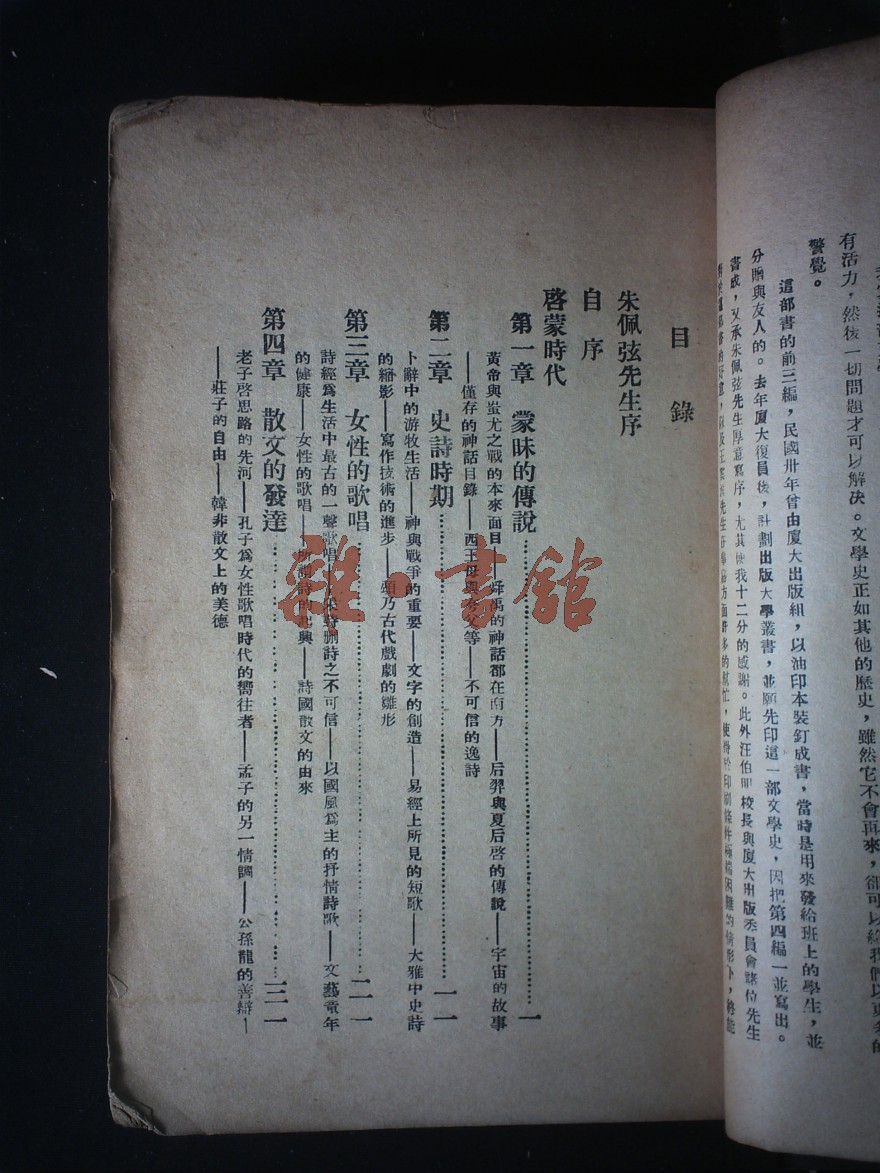 有活力，然後一切問題才可以解决。文學史正如其他的歷史，雖然它不會再來，卻可以給我們以更多的
警覺。
這部書的前三編，民國卅年曾由廈大出版組，以油印本裝釘成書，當時是用來發給班上的學生，並
分贈與友人的。去年廈大復員後，計劃出版大學叢書，並願先印這一部文學史，因把第四編一並寫出。
書成，又承朱佩弦先生厚意寫序，尤其使我十二分的感謝。此外汪伯明校長與廈大出版委員會諸位先生
目錄
朱佩弦先生序
自序
啓蒙時代
第一章 蒙昧的傳說……一
黃帝與蚩尤之戰的本來面目——舜禹的神話都在南方——后羿與夏后啓的傳說——宇宙的故事
——僅存的神話目錄——西王母與夸父等——不可信的逸詩
第二章 史詩時期……一一
卜辭中的游牧生活——神與戰爭的重要——文字的創造——易經上所見的短歌——大雅中史詩
的縮影——寫作技術的進步——頌乃古代戲劇的雛形
第三章 女性的歌唱……二一
詩經爲生活中最古的一聲歌唱——采詩刪詩之不可信——以國風爲主的抒情詩歌——文藝童年
的健康——女性的歌唱——所謂詩的起興——詩國散文的由來
第四章 散文的發達……三一
老子啓思路的先河——孔子爲女性歌唱時代的嚮往者——孟子的另一情調——公孫龍的善辯—
——莊子的自由——韓非散文上的美德
雜·書館